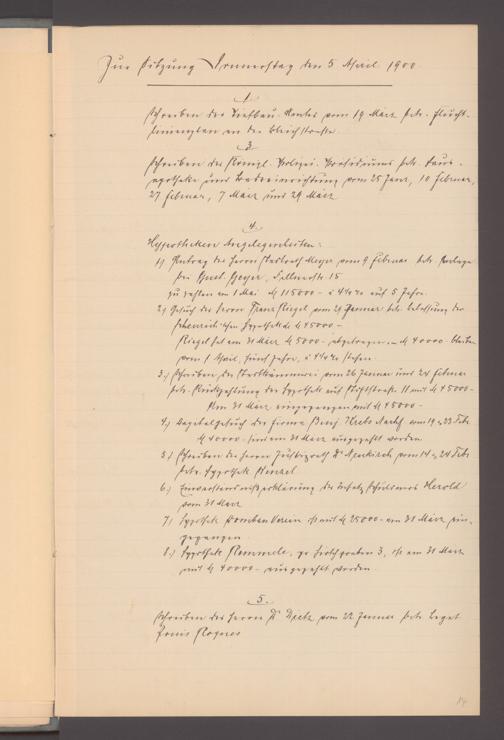 Zur Sitzung Donnerstag den 5 April 1900
1.
Schreiben des Tiefbau-Amtes vom 19 März betr. Flucht-
linienplan an der Bleichstrasse
3.
Schreiben des Königl. Polizei-Präsidiums betr. Haus-
apotheke und Badeeinrichtung vom 25 Janr, 10 Februar,
27 Februar, 7 März und 29 März
4.
Hypotheken Angelegenheiten:
1) Antrag des Herrn Stadtrath Meyer vom 9 Februar betr. Anlage
bei Gust. Geyer, 15
zu zahlen am 1 Mai M 115000 - à 4 % auf 5 Jahre.
2) Gesuch des Herrn Franz Riegel vom 29 Januar betr. Belassung der
Hypothek de M 45000 -
Riegel hat am 31 März M 5000 - abgetragen M 40000 - bleiben
vom 1 April, fünf Jahre, à 4 % stehen
3.) Schreiben der Stadtkämmerei vom 26 Januar und 24 Februar
betr. Rückzahlung der Hypothek auf Stiftstrasse mit M 45000 -
Am 31 März eingegangen mit M 45000 -
4.) Kapitalgesuch der Firma Benj. Krebs Nachf vom 19 & 23 Febr.
M 40000 - sind am 31 März ausgezahlt worden
5.) Schreiben des Herrn Justizrath Dr vom 14 & 24 Febr
betr. Hypothek Henkel
6.) Einverständnisserklärung des Herold
vom 31 März
7.) Hypothek Verein ist mit M 25000 - am 31 März ein-
gegangen
8.) Hypothek gr. Hirschgraben 3, ist am 31 März
mit M 40000 - ausgezahlt worden.
5.
Schreiben des Herrn Dr Dietz vom 22 Januar betr. Legat
Louis